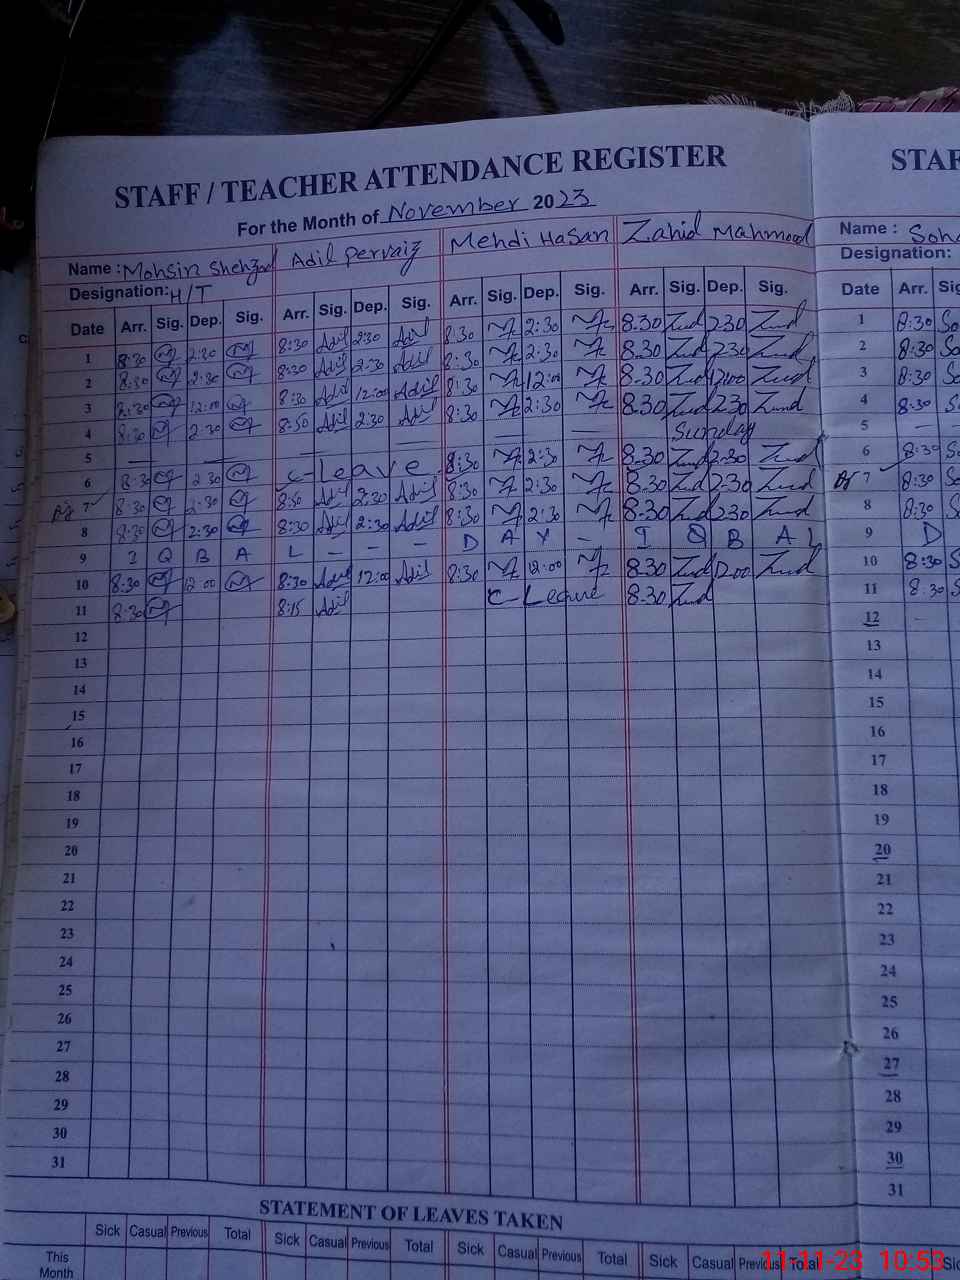 STAFF / TEACHER ATTENDANCE REGISTER STAF
For the Month of November 2023
Name : Mohsin Shehzad Adil Pervaiz Mehdi Hasan Zahid Mahmood Name : Soh
Designation: H/T Designation:
Date Arr. Sig. Dep. Sig. Arr. Sig. Dep. Sig. Arr. Sig. Dep. Sig. Arr. Sig. Dep. Sig. Date Arr. Sig
1 8:30 2:30 8:30 Adil 2:30 Adil 8:30 2:30 8.30 Zmd 2.30 Zmd 1 8:30 So
2 8:30 2:30 8:30 Adil 2:30 Adil 8:30 2:30 8.30 Zmd 2.30 Zmd 2 8:30 So
3 8:30 12:00 8:30 Adil 12:00 Adil 8:30 12:00 8.30 Zmd 12.00 Zmd 3 8:30 S
4 8:30 2:30 8:50 Adil 2:30 Adil 8:30 2:30 8.30 Zmd 2.30 Zmd 4 8:30 S
5 — — — — — — Sunday 5 — —
6 8:30 2:30 C-Leave 8:30 2:30 8.30 Zmd 2.30 Zmd 6 8:30 S
7 8:30 2:30 8:50 Adil 2:30 Adil 8:30 2:30 8.30 Zmd 2.30 Zmd 7 8:30 S
8 8:30 2:30 8:30 Adil 2:30 Adil 8:30 2:30 8.30 Zmd 2.30 Zmd 8 8:30 S
9 I Q B A L – – – D A Y – I Q B A L 9 D
10 8:30 12:00 8:30 Adil 12:00 Adil 8:30 12:00 8.30 Zmd 12.00 Zmd 10 8:30 S
11 8:30 8:15 Adil C-Leave 8.30 Zmd 11 8:30 S
12 12
13 13
14 14
15 15
16 16
17 17
18 18
19 19
20 20
21 21
22 22
23 23
24 24
25 25
26 26
27 27
28 28
29 29
30 30
31 31
STATEMENT OF LEAVES TAKEN
Sick Casual Previous Total Sick Casual Previous Total Sick Casual Previous Total Sick Casual Previous Total Sic
This
Month
11-11-23 10:53